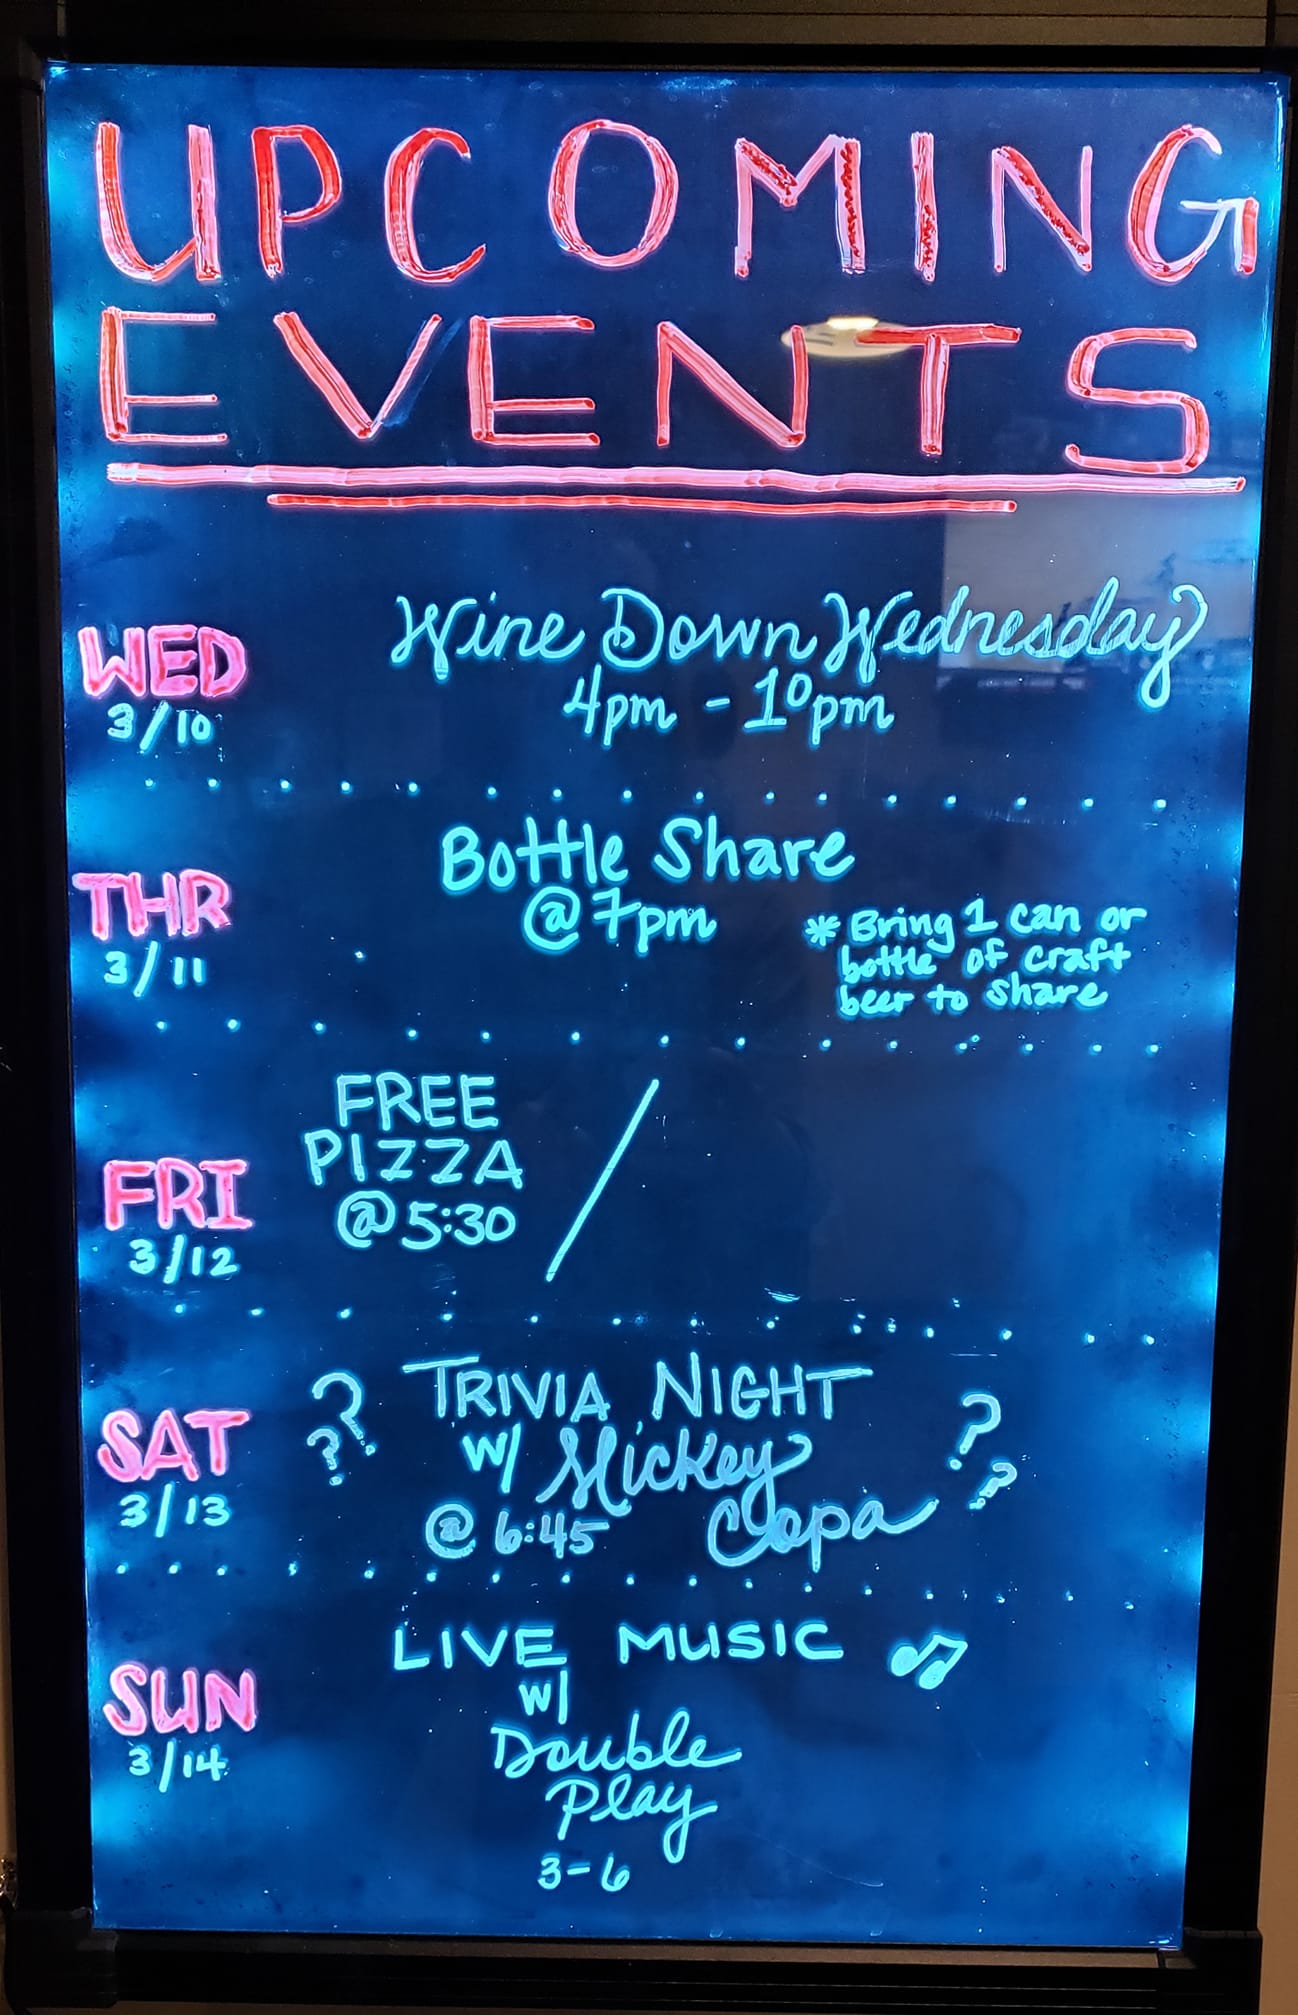 UPCOMING
EVENTS
WED
3/10
Wine Down Wednesday
4pm - 10pm
THR
3/11
Bottle Share
@ 7pm
* Bring 1 can or
bottle of craft
beer to share
FRI
3/12
FREE
PIZZA
@ 5:30
/
SAT
3/13
? ?
TRIVIA NIGHT
w/ Mickey
@ 6:45 Capa
? ?
SUN
3/14
LIVE MUSIC
w/
Double
Play
3-6